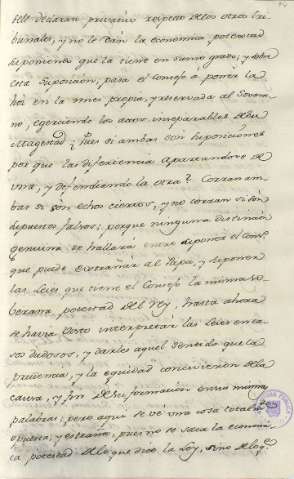 se declaran privativo respecto de los otros tri-
bunales, y no le dán la economica potestad
suponiendo que la tiene en sumo grado; y sobre
esta suposicion, pasa el Consejo á poner la
hoz en la mies propia, y reservada al Sobera-
no, egerciendo los actos inseparables de su
Magestad ¿ Pues si ambas son suposiciones
por que las diferencia apartandose de
una, y defendiendo la otra? Corran am-
bas si són echos ciertos, y no corran si són
supuestos falsos; porque ninguna distincion
genuina se hallará entre suponer el Cons.
que puede extrañar al Papa, y suponen
las Leies que tiene el Consejo la misma so-
berana potestad del Rey, hasta ahora
se havia visto interpretar las leies en ca-
sos dudosos, y darles aquel sentido que la
prudencia, y la equidad concivieron de la
causa, y fin de su formacion en sus mismas
palabras; pero aqui se vé una cosa total.te
opuesta, y estraña, pues no se saca la econami-
ca potestad de lo que dice la Ley, sino de lo q.e